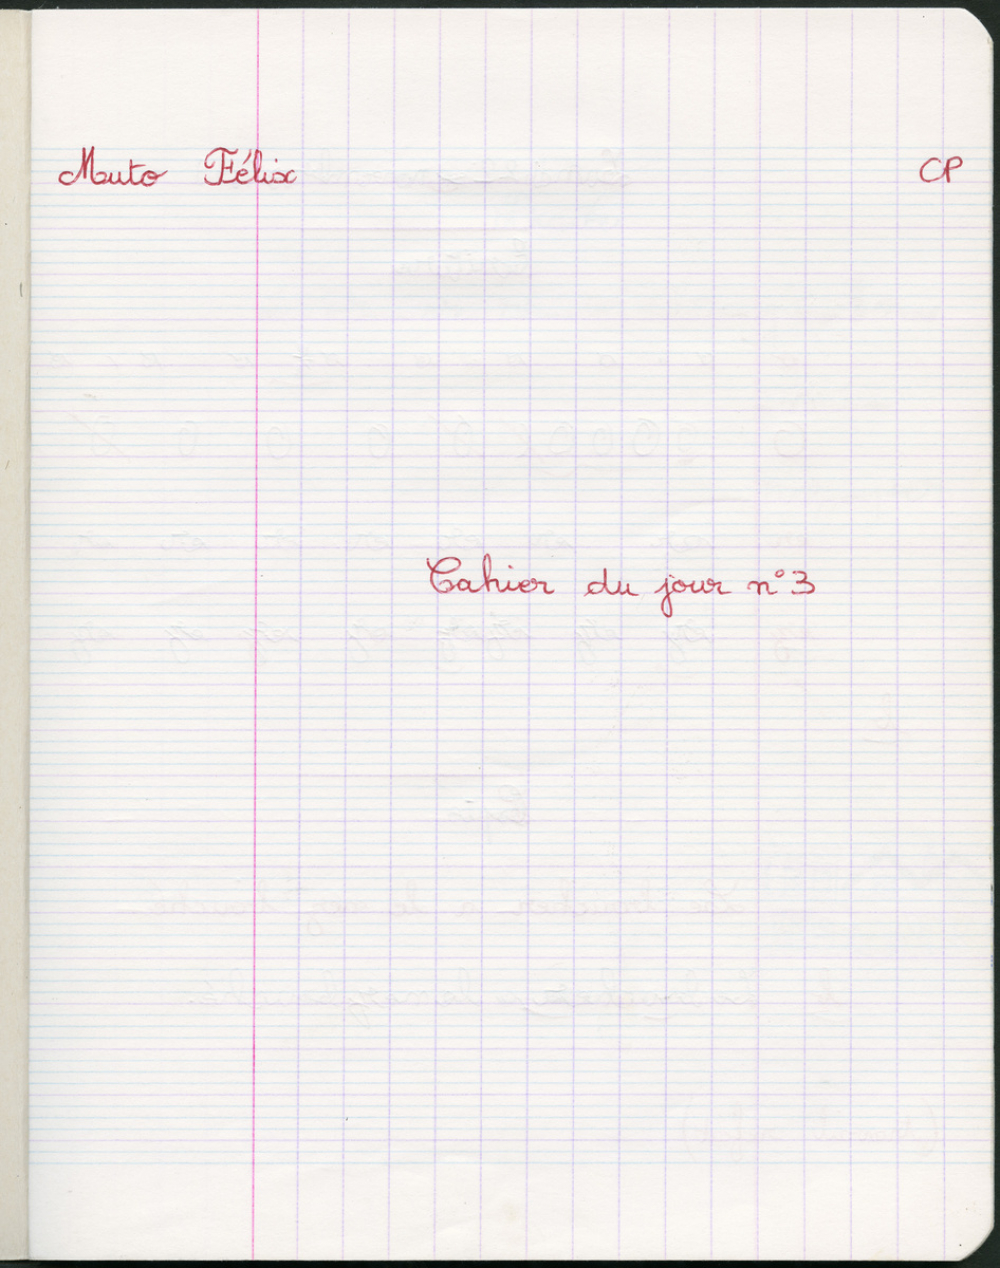 Muto Félix CP
Cahier du jour n°3